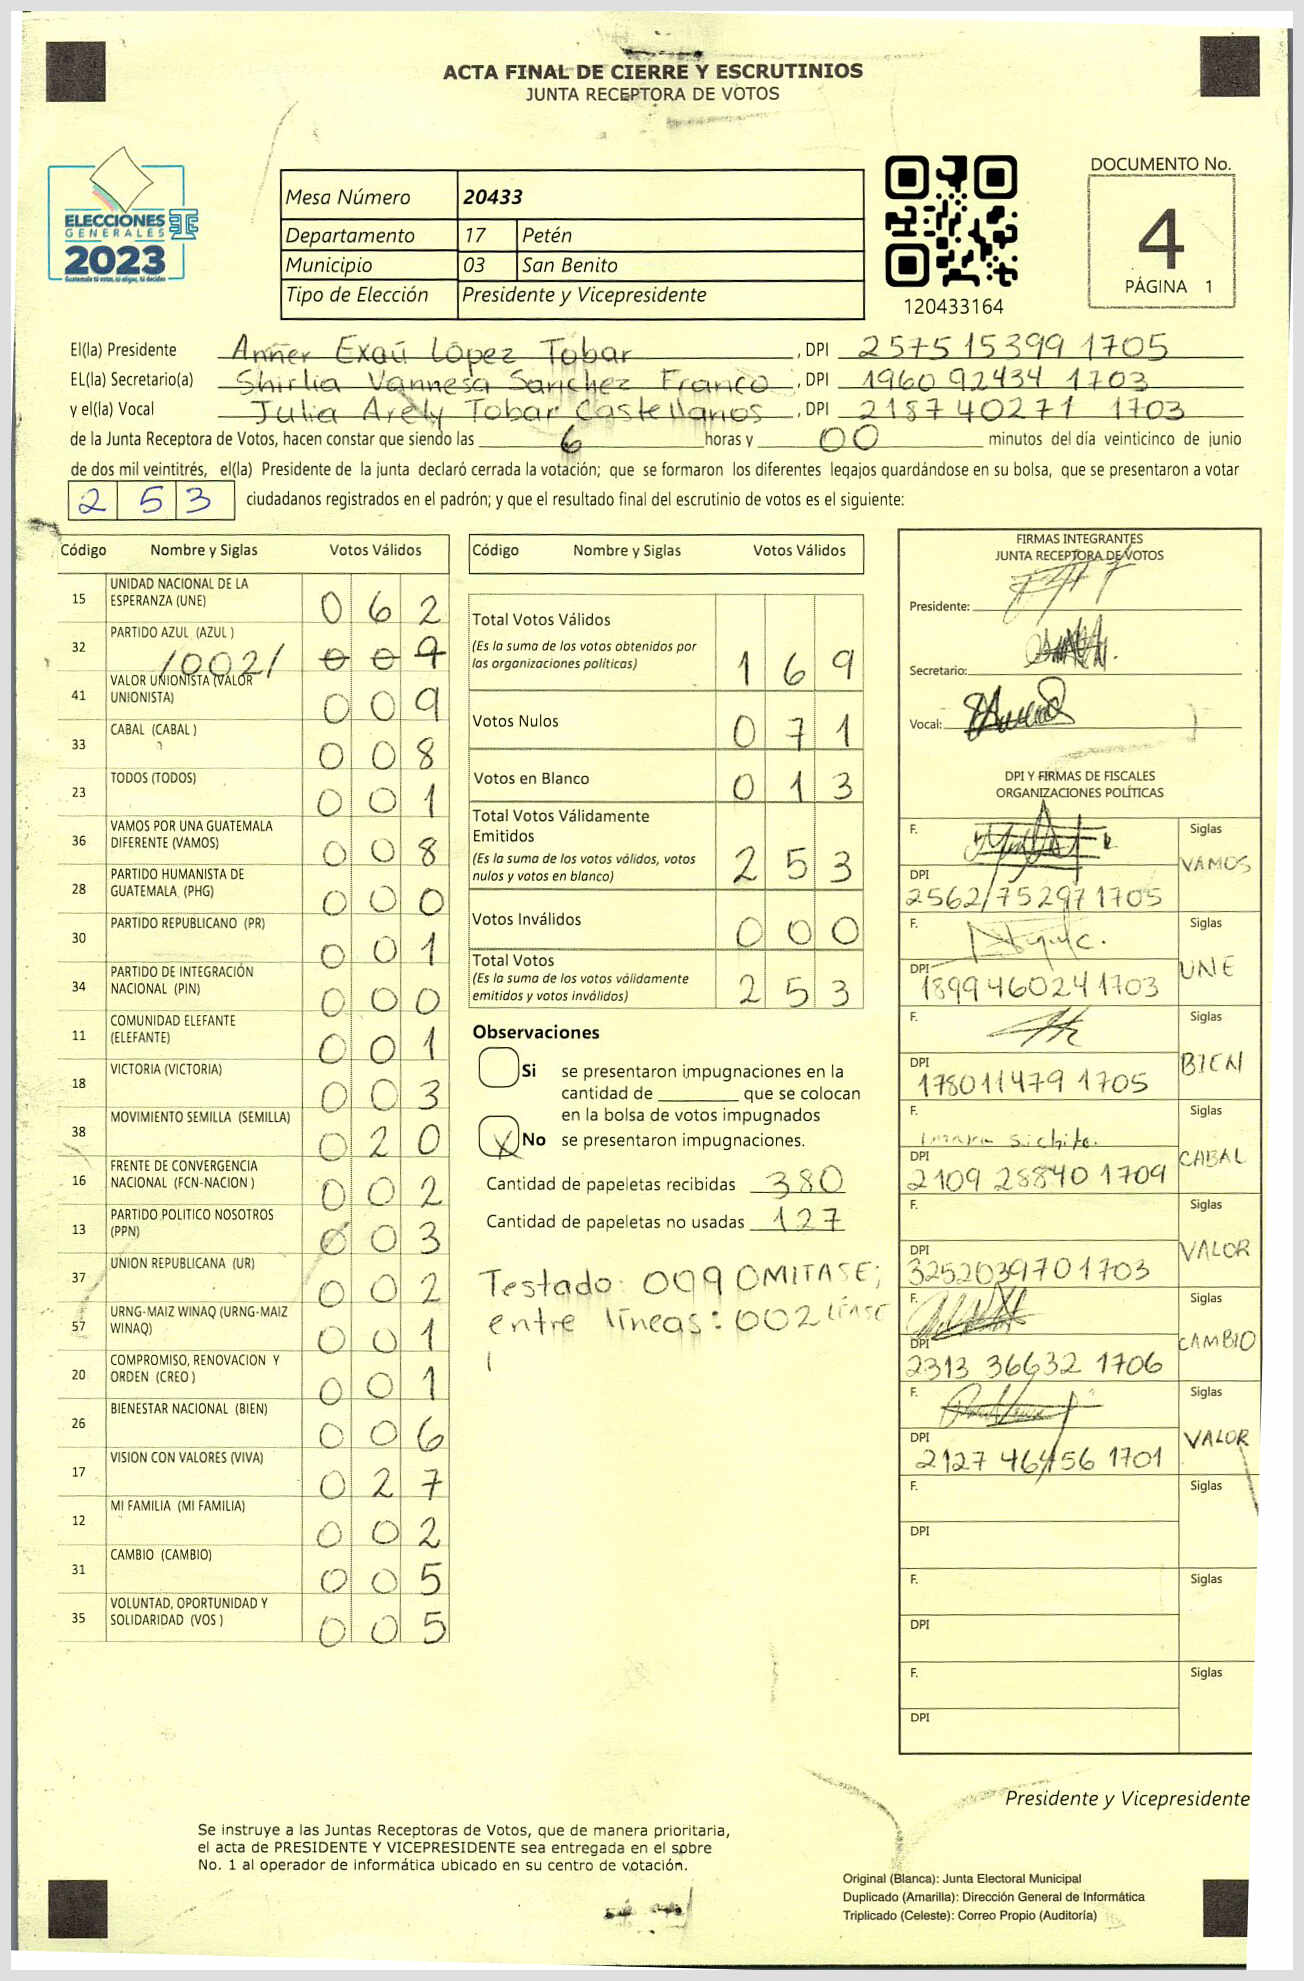 ACTA FINAL DE CIERRE Y ESCRUTINIOS
JUNTA RECEPTORA DE VOTOS
ELECCIONES
GENERALES
2023
Guatemala tú votas, tú eliges, tú decides
Mesa Número 20433
Departamento 17 Petén
Municipio 03 San Benito
Tipo de Elección Presidente y Vicepresidente
120433164
DOCUMENTO No.
4
PÁGINA 1
El(la) Presidente Anner Exaú López Tobar, DPI 2575 15399 1705
EL(la) Secretario(a) Shirlia Vannesa Sanchez Franco, DPI 1960 92434 1703
y el(la) Vocal Julia Arely Tobar Castellanos, DPI 2187 40271 1703
de la Junta Receptora de Votos, hacen constar que siendo las 6 horas y 00 minutos del día veinticinco de junio
de dos mil veintitrés, el(la) Presidente de la junta declaró cerrada la votación; que se formaron los diferentes legajos guardándose en su bolsa, que se presentaron a votar
253 ciudadanos registrados en el padrón; y que el resultado final del escrutinio de votos es el siguiente:
Código Nombre y Siglas Votos Válidos
15 UNIDAD NACIONAL DE LA ESPERANZA (UNE) 062
32 PARTIDO AZUL (AZUL ) /002/ 009
41 VALOR UNIONISTA (VALOR UNIONISTA) 009
33 CABAL (CABAL ) 008
23 TODOS (TODOS) 001
36 VAMOS POR UNA GUATEMALA DIFERENTE (VAMOS) 008
28 PARTIDO HUMANISTA DE GUATEMALA (PHG) 000
30 PARTIDO REPUBLICANO (PR) 001
34 PARTIDO DE INTEGRACIÓN NACIONAL (PIN) 000
11 COMUNIDAD ELEFANTE (ELEFANTE) 001
18 VICTORIA (VICTORIA) 003
38 MOVIMIENTO SEMILLA (SEMILLA) 020
16 FRENTE DE CONVERGENCIA NACIONAL (FCN-NACION ) 002
13 PARTIDO POLITICO NOSOTROS (PPN) 003
37 UNION REPUBLICANA (UR) 002
57 URNG-MAIZ WINAQ (URNG-MAIZ WINAQ) 001
20 COMPROMISO, RENOVACION Y ORDEN (CREO ) 001
26 BIENESTAR NACIONAL (BIEN) 006
17 VISION CON VALORES (VIVA) 027
12 MI FAMILIA (MI FAMILIA) 002
31 CAMBIO (CAMBIO) 005
35 VOLUNTAD, OPORTUNIDAD Y SOLIDARIDAD (VOS ) 005
Código Nombre y Siglas Votos Válidos
Total Votos Válidos
(Es la suma de los votos obtenidos por
las organizaciones políticas) 169
Votos Nulos 071
Votos en Blanco 013
Total Votos Válidamente
Emitidos
(Es la suma de los votos válidos, votos
nulos y votos en blanco) 253
Votos Inválidos 000
Total Votos
(Es la suma de los votos válidamente
emitidos y votos inválidos) 253
Observaciones
Si se presentaron impugnaciones en la
cantidad de ________ que se colocan
en la bolsa de votos impugnados
X No se presentaron impugnaciones.
Cantidad de papeletas recibidas 380
Cantidad de papeletas no usadas 127
Testado: 009 OMITASE;
entre líneas: 002 LÉASE
FIRMAS INTEGRANTES
JUNTA RECEPTORA DE VOTOS
Presidente:
Secretario:
Vocal:
DPI Y FIRMAS DE FISCALES
ORGANIZACIONES POLÍTICAS
F. Siglas
DPI VAMOS
2562175297 1705
F. Siglas
DPI UNE
1899 46024 1703
F. Siglas
DPI BIEN
178011479 1705
F. Siglas
DPI CABAL
2109 28840 1709
F. Siglas
DPI VALOR
3252039701703
F. Siglas
DPI CAMBIO
2313 36632 1706
F. Siglas
DPI VALOR
2127 46456 1701
F. Siglas
DPI
F. Siglas
DPI
F. Siglas
DPI
Presidente y Vicepresidente
Se instruye a las Juntas Receptoras de Votos, que de manera prioritaria,
el acta de PRESIDENTE Y VICEPRESIDENTE sea entregada en el sobre
No. 1 al operador de informática ubicado en su centro de votación.
Original (Blanca): Junta Electoral Municipal
Duplicado (Amarilla): Dirección General de Informática
Triplicado (Celeste): Correo Propio (Auditoría)